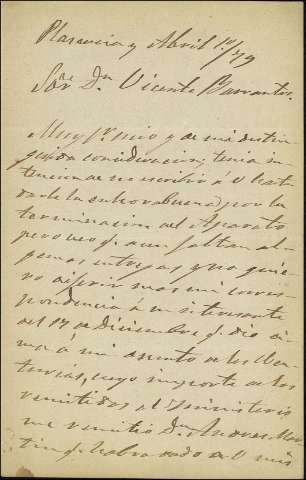 Plasencia y Abril 1º/79
Sor. Dn. Vicente Barrantes.
Muy Sr. mio y de mi distin-
guida consideracion; tenia in-
tencion de no escribir á V. hasta
darle la enhorabuena por la
terminacion del Aparato
pero veo q. aun faltan al-
gunas entregas y no quie-
ro diferir mas mi corres-
pondencia á su interesante
del 17 de Diciembre q. dió ci-
ma á mi asunto de las
cuyo importe de los
remitidos al Ministerio
me remitió Dn. Andres Mar-
tin q. habra dado á V. mis